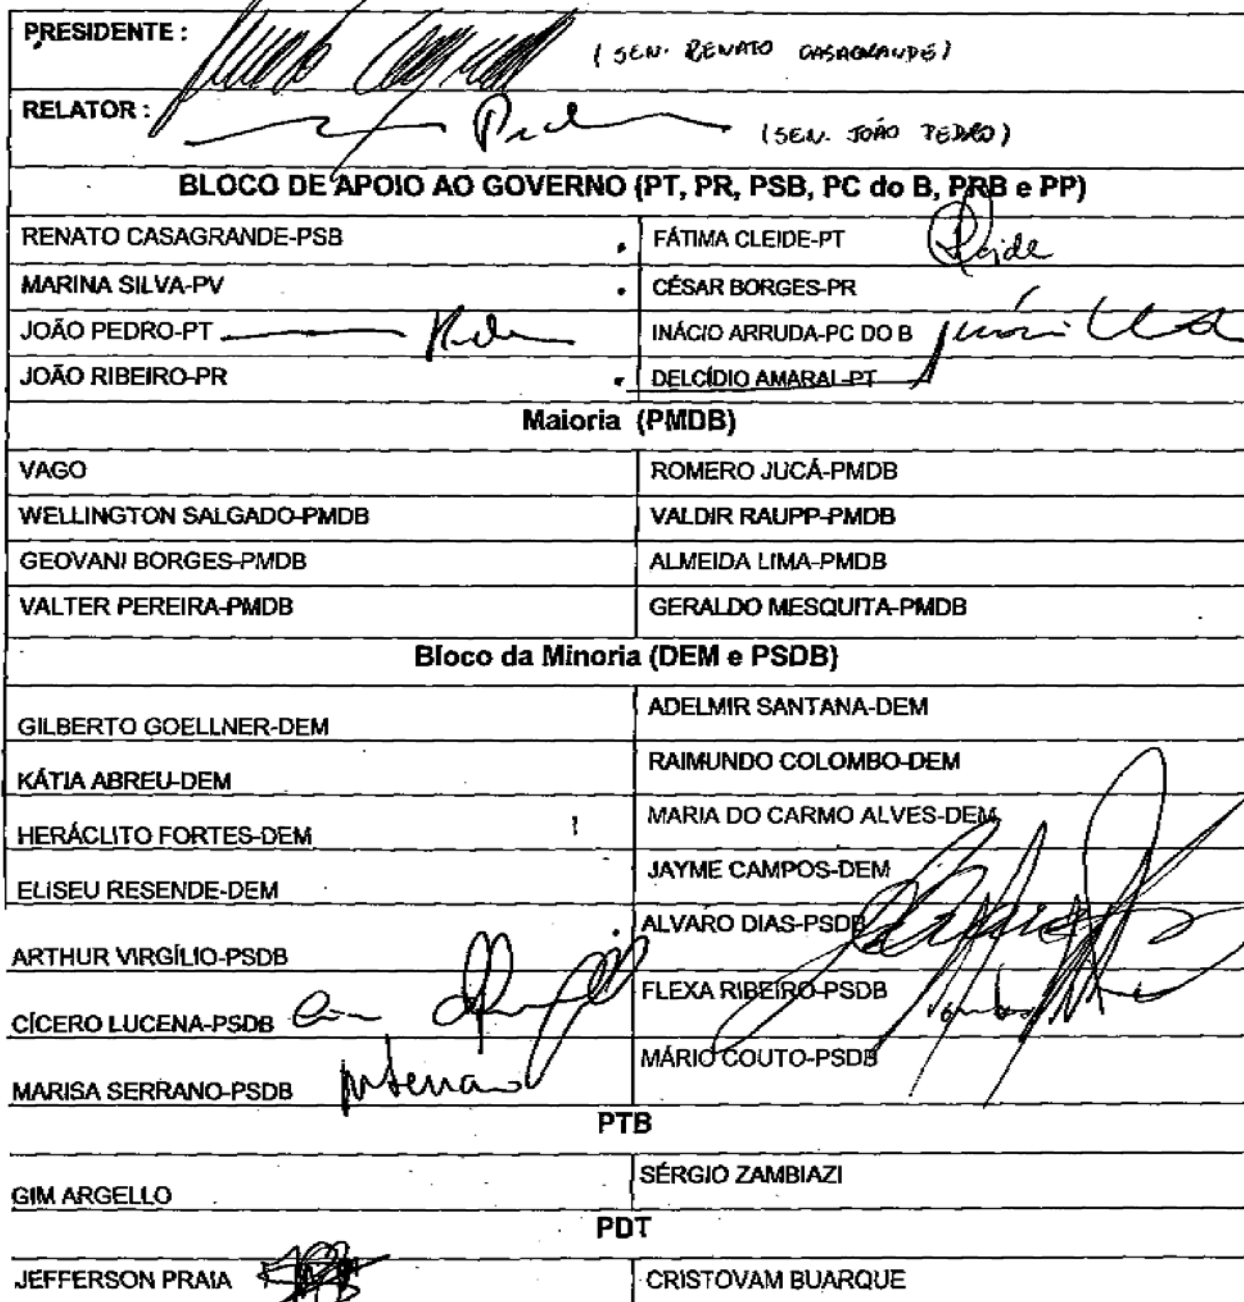 PRESIDENTE : (SEN. RENATO CASAGRANDE)
RELATOR : (SEN. JOÃO PEDRO)
BLOCO DE APOIO AO GOVERNO (PT, PR, PSB, PC do B, PRB e PP)
RENATO CASAGRANDE-PSB FÁTIMA CLEIDE-PT
MARINA SILVA-PV CÉSAR BORGES-PR
JOÃO PEDRO-PT INÁCIO ARRUDA-PC DO B
JOÃO RIBEIRO-PR DELCÍDIO AMARAL-PT
Maioria (PMDB)
VAGO ROMERO JUCÁ-PMDB
WELLINGTON SALGADO-PMDB VALDIR RAUPP-PMDB
GEOVANI BORGES-PMDB ALMEIDA LIMA-PMDB
VALTER PEREIRA-PMDB GERALDO MESQUITA-PMDB
Bloco da Minoria (DEM e PSDB)
GILBERTO GOELLNER-DEM ADELMIR SANTANA-DEM
KÁTIA ABREU-DEM RAIMUNDO COLOMBO-DEM
HERÁCLITO FORTES-DEM MARIA DO CARMO ALVES-DEM
ELISEU RESENDE-DEM JAYME CAMPOS-DEM
ARTHUR VIRGÍLIO-PSDB ALVARO DIAS-PSDB
CÍCERO LUCENA-PSDB FLEXA RIBEIRO-PSDB
MARISA SERRANO-PSDB MÁRIO COUTO-PSDB
PTB
GIM ARGELLO SÉRGIO ZAMBIAZI
PDT
JEFFERSON PRAIA CRISTOVAM BUARQUE